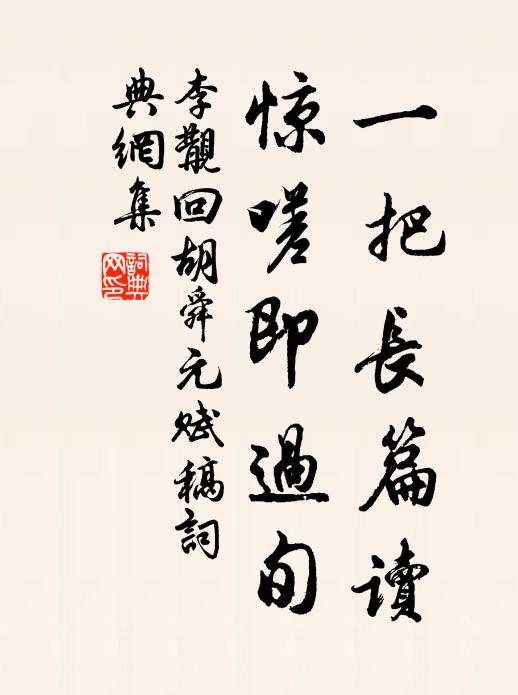 一把長篇讀
惊嗟即過旬
李觀回胡舜元賦稿詞
典網集
詞典網印